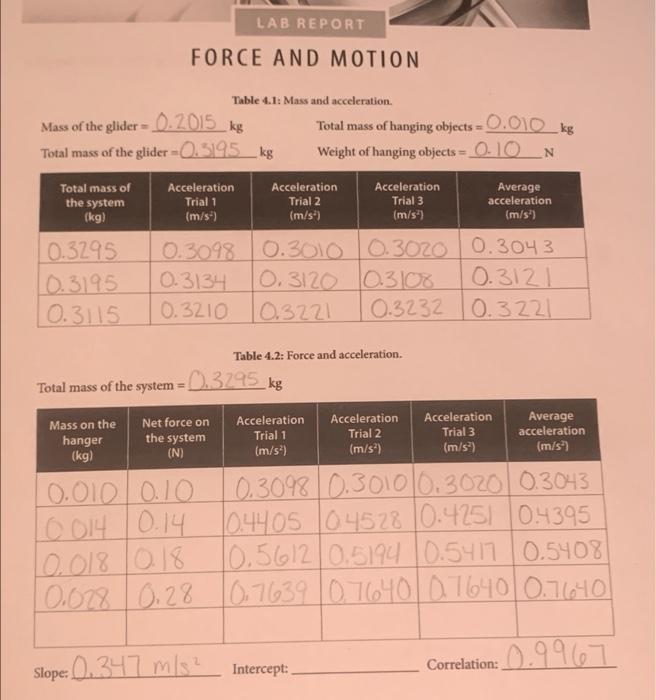 LAB REPORT
FORCE AND MOTION
Table 4.1: Mass and acceleration.
Mass of the glider = 0.2015 kg Total mass of hanging objects = 0.010 kg
Total mass of the glider = 0.3195 kg Weight of hanging objects = 0.10 N
Total mass of the system (kg) Acceleration Trial 1 (m/s²) Acceleration Trial 2 (m/s²) Acceleration Trial 3 (m/s²) Average acceleration (m/s²)
0.3295 0.3098 0.3010 0.3020 0.3043
0.3195 0.3134 0.3120 0.3108 0.3121
0.3115 0.3210 0.3221 0.3232 0.3221
Table 4.2: Force and acceleration.
Total mass of the system = 0.3295 kg
Mass on the hanger (kg) Net force on the system (N) Acceleration Trial 1 (m/s²) Acceleration Trial 2 (m/s²) Acceleration Trial 3 (m/s²) Average acceleration (m/s²)
0.010 0.10 0.3098 0.3010 0.3020 0.3043
0.014 0.14 0.4405 0.4528 0.4251 0.4395
0.018 0.18 0.5612 0.5194 0.5417 0.5408
0.028 0.28 0.7639 0.7640 0.7640 0.7640
Slope: 0.347 m/s² Intercept: Correlation: 0.9967